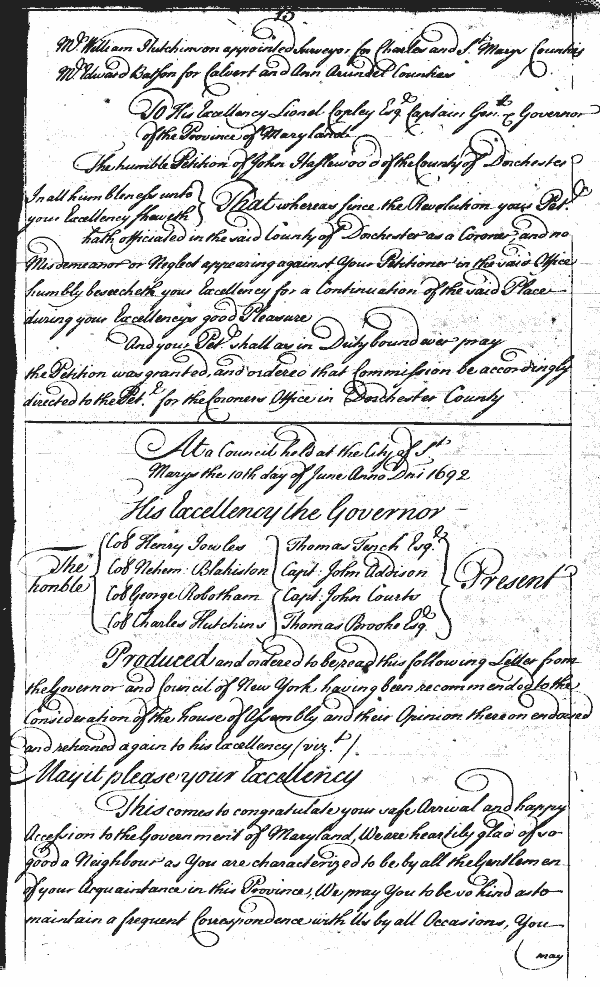 15
Mr. William Hutchinson appointed Surveyor for Charles and St. Marys Counties
Mr. Edward Batson for Calvert and Ann Arundel Counties
To His Excellency Lionel Copley Esqr. Captain Genll. & Governor
of the Province of Maryland
The humble Petition of John Haslewood of the County of Dorchester
In all humbleness unto
your Excellency sheweth
That whereas since the Revolution your Petr. &c
hath officiated in the said County of Dorchester as a Coroner, and no
Misdemeanor or Neglect appearing against Your Petitioner in the said Office
humbly beseecheth your Excellency for a Continuation of the said Place
during your Excellencys good Pleasure
And your Petr. shall as in Duty bound ever pray
the Petition was granted, and ordered that Commission be accordingly
directed to the Petr. for the Coroners Office in Dorchester County
At a Council held at the City of St.
Marys the 10th day of June Anno Dni 1692
His Excellency the Governor
The honble
Col Henry Jowles
Col Nehem: Blakiston
Col George Robotham
Col Charles Hutchins
Thomas Tench Esqr.
Capt. John Addison
Capt. John Courts
Thomas Brooke Esqr.
Present
Produced and ordered to be read this following Letter from
the Governor and Council of New York having been recommended to the
Consideration of the House of Assembly and their Opinion thereon endorsed
and returned again to his Excellency (vizt.)
May it please your Excellency
This comes to congratulate your safe Arrival and happy
Accession to the Government of Maryland, We are heartily glad of so
good a Neighbour as You are characterized to be by all the Gentlemen
of your Acquaintance in this Province, We pray You to be so kind as to
maintain a frequent Correspondence with Us by all Occasions, You
may